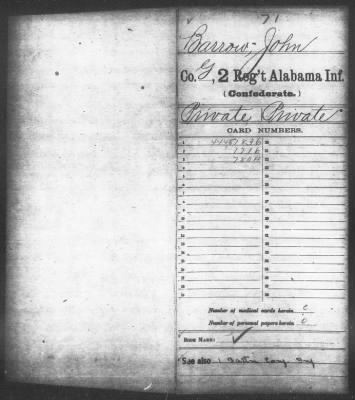 71
Barrow, John
Co. G, 2 Reg't Alabama Inf.
(Confederate.)
Private Private
CARD NUMBERS.
1 44451896
2 1916
3
Number of medical cards herein
Number of personal papers herein 0
BOOK MARK:
See also 1